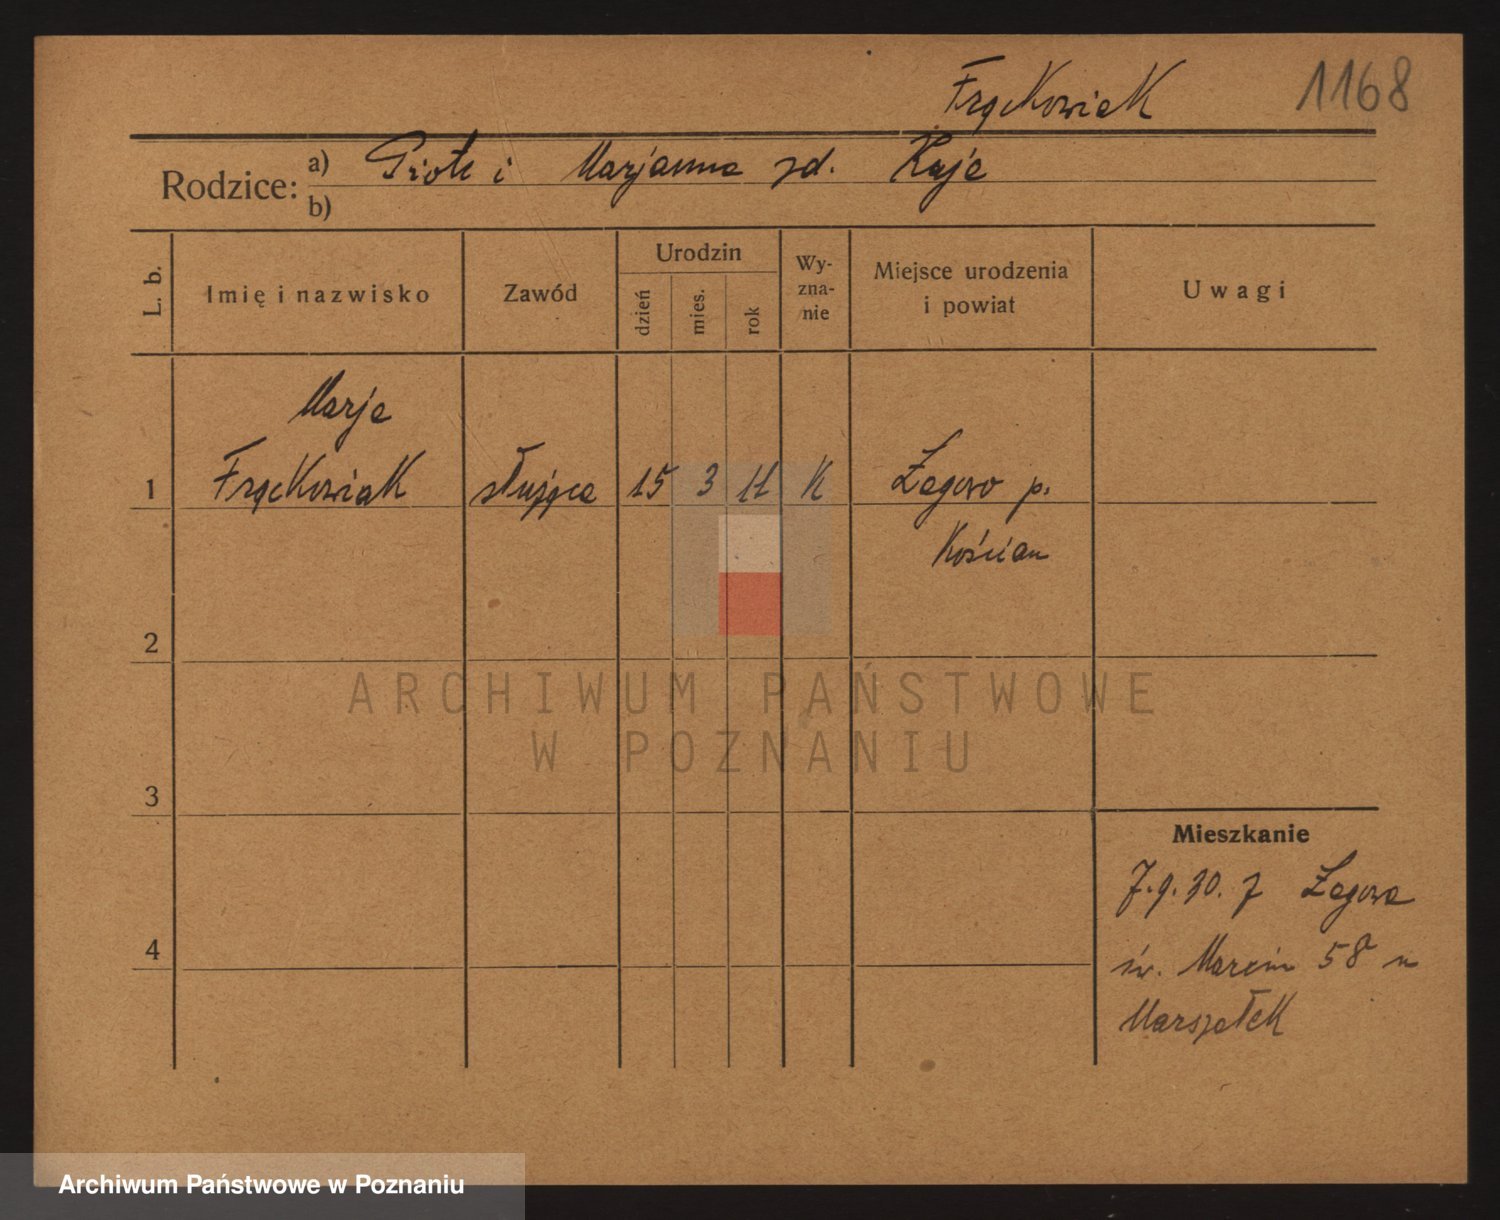 Frąckowiak 1168
Rodzice: a) Piotr i Marjanna zd. Kaje
b)
L. b. Imię i nazwisko Zawód Urodzin dzień mies. rok Wy-zna-nie Miejsce urodzenia i powiat Uwagi
Marja
1 Frąckowiak służąca 15 3 11 K Żegowo p.
Kościan
2
ARCHIWUM PAŃSTWOWE
W POZNANIU
3
Mieszkanie
7.9.30. z Żegowa
4
św. Marcin 58 u
Marszałek
Archiwum Państwowe w Poznaniu